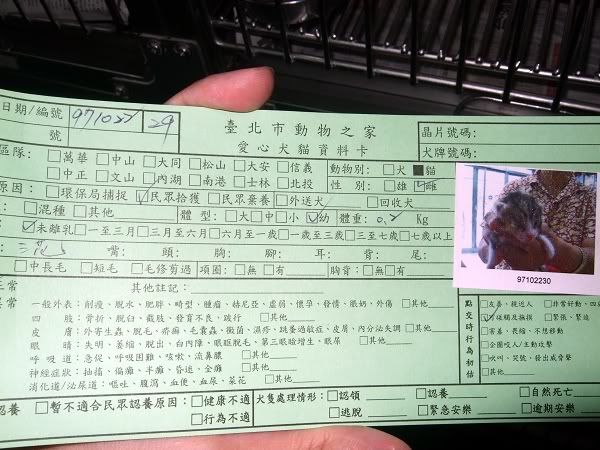 日期/編號 971022 29
號
臺北市動物之家
愛心犬貓資料卡
晶片號碼:
犬牌號碼:
區隊: □萬華 □中山 □大同 □松山 □大安 □信義 動物別: □犬 ■貓
□中正 □文山 □內湖 □南港 □士林 □北投 性別: □雄 □雌
原因: □環保局捕捉 ☑民眾拾獲 □民眾棄養 □外送犬 □回收犬
: □混種 □其他 體型: □大 □中 □小 ☑幼 體重: 0.2 Kg
☑未離乳 □一至三月 □三月至六月 □六月至一歲 □一歲至三歲 □三至七歲 □七歲以上
嘴: 頭: 胸: 腳: 耳: 背: 尾:
□中長毛 □短毛 □毛修剪過 項圈: □無 □有 胸背: □無 □有
97102230
正常 其他註記:
異常 一般外表: 削瘦、脫水、肥胖、畸型、腫瘤、赫尼亞、虛弱、懷孕、發情、脹奶、外傷 □其他
四肢: 骨折、脫臼、截肢、發育不良、跛行 □其他
皮膚: 外寄生蟲、脫毛、疥癬、毛囊蟲、黴菌、濕疹、跳蚤過敏症、皮屑、內分泌失調 □其他
眼睛: 失明、萎縮、脫出、白內障、眼瞼脫毛、第三眼瞼增生、眼屎 □其他
呼吸道: 急促、呼吸困難、咳嗽、流鼻膿 □其他
神經症狀: 抽搐、偏癱、半癱、昏迷、全癱 □其他
消化道/泌尿道: 嘔吐、腹瀉、血便、血尿、菜花 □其他
點交時行為初估
□友善、親近人 □非常好動、四
☑可碰觸及撫摸 □緊張、緊迫
□害羞、畏縮、不想移動
□企圖咬人/主動攻擊
□吠叫、哭號、發出威脅聲
□其他
認養 □暫不適合民眾認養原因: □健康不適 犬隻處理情形: □認領 □認養 □自然死亡
□行為不適 □逃脫 □緊急安樂 □逾期安樂